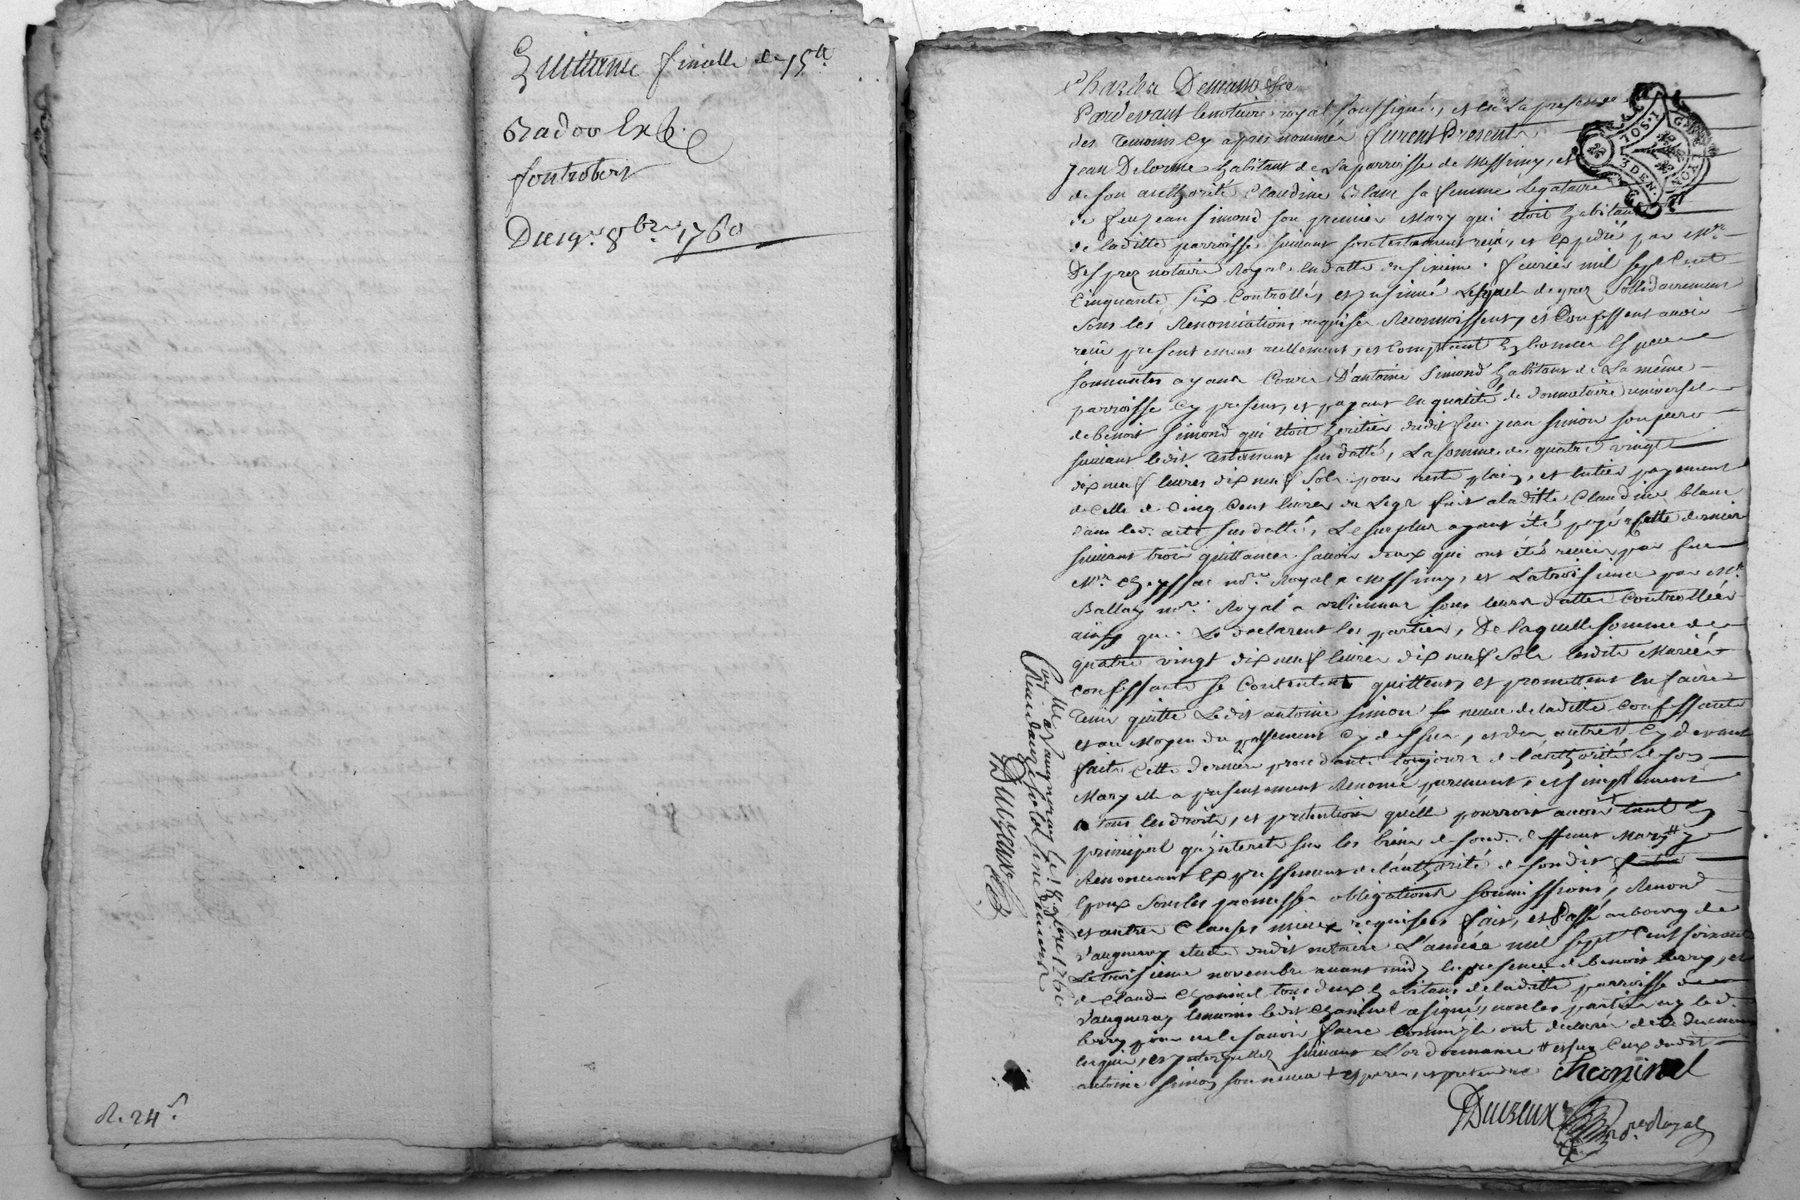 Quittance finalle de 15ᵗᵗ
fontrobert
Du 19ᵉ 8bre 1760
R. 24ˢ
Pardevant le notaire royal soussigné, et en la presence
des temoins cy apres nommés furent Presents
Jean Delorme habitant de la parroisse de messimy, et
de son authorité Claudine Blanc sa femme legataire
de feu jean simond son premier Mary qui etoit habitant
de laditte parroisse suivant son testament reçu, et expedié par Mʳ
Desprez notaire Royal en datte du sixieme fevrier mil sept cent
cinquante six controllé, et insinué Lesquels de grez Sollidairement
sous les Renonciations requises Reconnoissent, et Confessent avoir
reçu presentement reellement, et comptant en bonnes especes
sonnantes ayant cours D'antoine Simond habitant de La même
parroisse cy present, et payant en qualité de donnataire universel
de benoit Simond qui etoit heritier dudit feu jean simon son pere
suivant ledit testament susdatté, La somme de quatre vingt
dix neuf livres dix neuf sols pour reste plain, et entier payement
de celle de cinq cent livres du Legs fait a laditte Claudine blanc
dans led. acte susdatté, Le surplus ayant été payé a cette derniere
suivant trois quittances savoir deux qui ont étés reçües par feu
Mʳ noʳᵉ Royal a Messimy, et La troisieme par Mʳ
Ballay noʳᵉ Royal a sous leurs dattes Controllées
ainsy que Le declarent les parties, De laquelle somme de
quatre vingt dix neuf livres dix neuf sols lesdits Mariés
confessants se contentent quittent, et promettent en faire
tenir quitte Ledit antoine simon neveu de laditte confessante
et au Moyen du payement cy dessus, et des autres cy devant
faits cette derniere procedante toujours de l'authorité de son
Mary elle a presentement Renoncé purement, et simplement
a tous les droits, et pretentions qu'elle pourroit avoir tant en
principal qu'interets sur les biens de son deffunt Mary
Renonçant expressement de l'authorité de sondit
Epoux sous les promesses obligations soumissions, Renon
et autres clauses mieux requises fait, et Passé au bourg de
vaugneray etude dudit notaire L'année mil sept cent soixante
Le troisieme novembre avant midy en presence de benoit berry, et
de Claude Chaninel tous deux habitans de laditte parroisse de
vaugneray temoins ledit Chaninel a signé, non les parties ny led.
berry pour ne le savoir faire comme ils ont declaré de ce duement
requis, et interpellés suivant L'ordonnance et sur ceux dudit
antoine simon son neveu esperer, et pretendre Chaninel
Dutreux noʳᵉ Royal
Conᵉˡˡᵉ a Vaugneray le 1760
Reçu douze sols